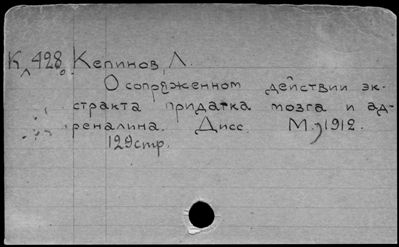 К 428. Кепинов, Л.
О сопряженном действии эк-
стракта придатка мозга и ад-
реналина. Дисс. М., 1912.
129стр.